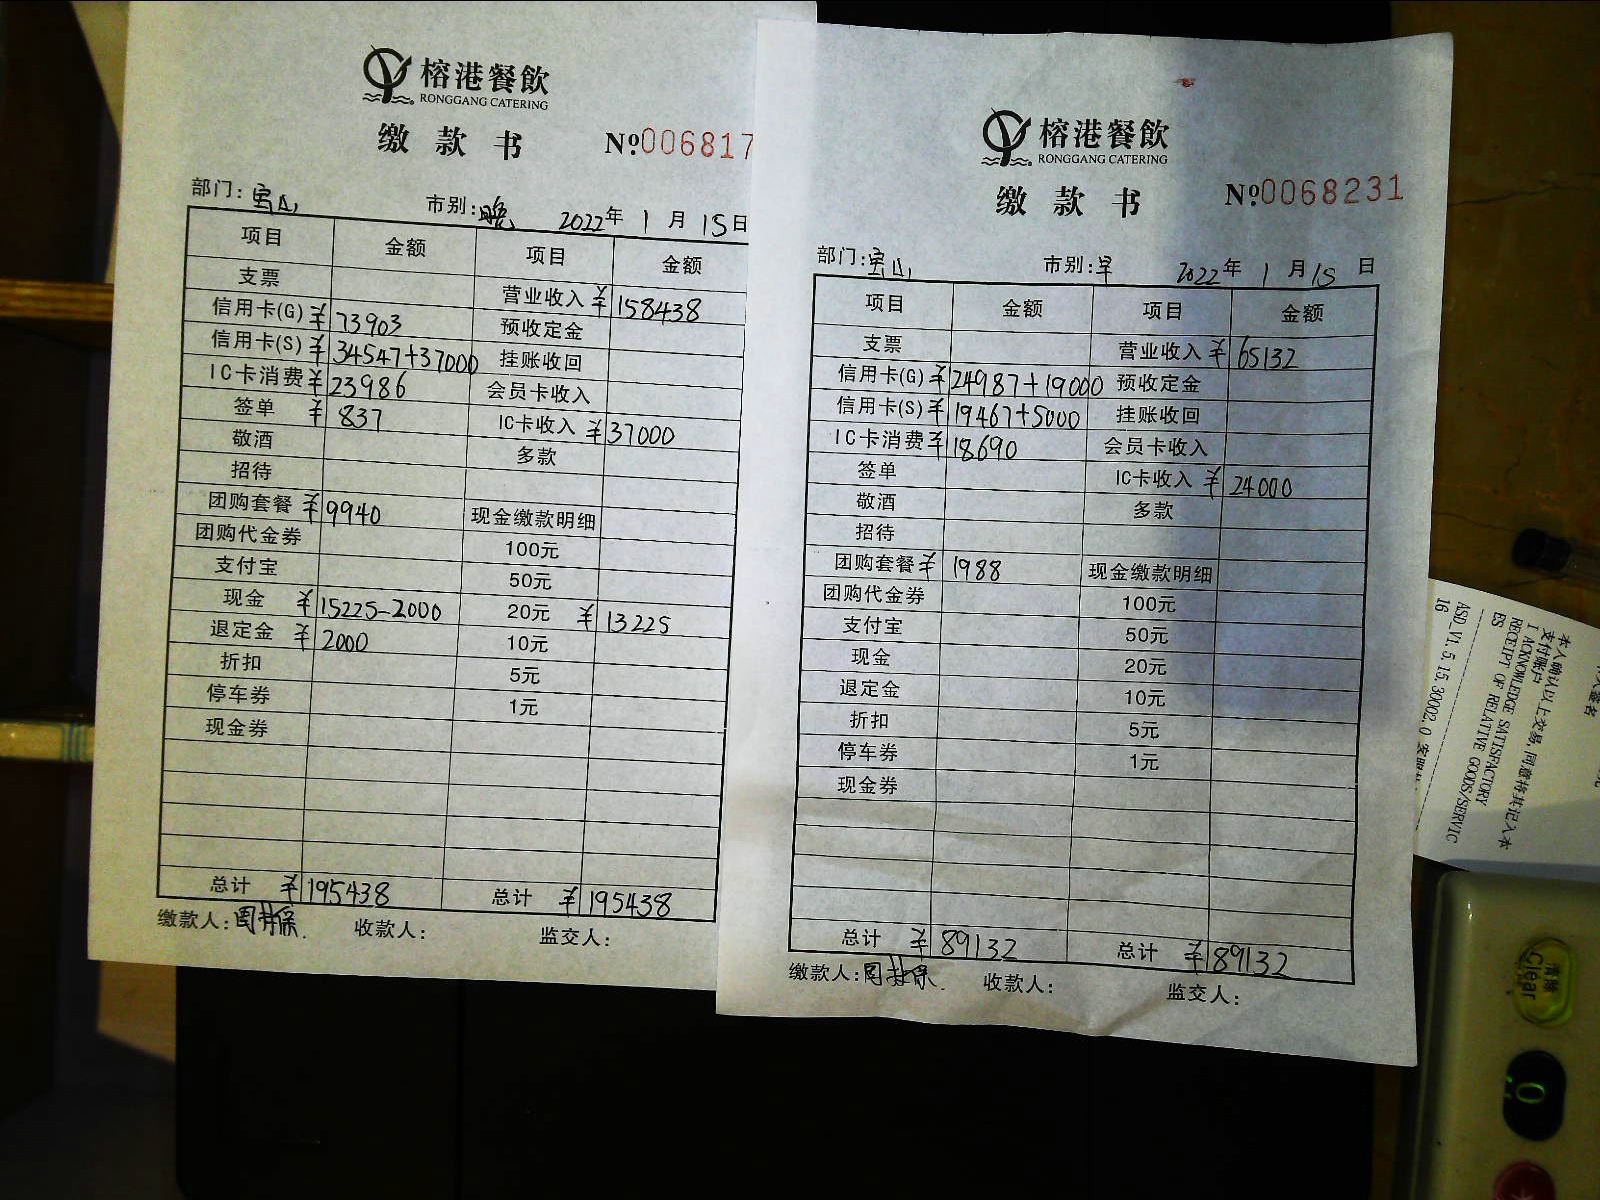 榕港餐飲
RONGGANG CATERING
缴款书 №006817
部门：宝山 市别：晚 2022年1月15日
项目 金额 项目 金额
支票 营业收入 ¥158438
信用卡(G) ¥73903 预收定金
信用卡(S) ¥34547+37000 挂账收回
IC卡消费 ¥23986 会员卡收入
签单 ¥837 IC卡收入 ¥37000
敬酒 多款
招待
团购套餐 ¥9940 现金缴款明细
团购代金券 100元
支付宝 50元
现金 ¥15225-2000 20元 ¥13225
退定金 ¥2000 10元
折扣 5元
停车券 1元
现金券
总计 ¥195438 总计 ¥195438
缴款人： 收款人： 监交人：
榕港餐飲
RONGGANG CATERING
缴款书 №0068231
部门：宝山 市别：早 2022年1月15日
项目 金额 项目 金额
支票 营业收入 ¥65132
信用卡(G) ¥24987+19000 预收定金
信用卡(S) ¥19467+5000 挂账收回
IC卡消费 ¥18690 会员卡收入
签单 IC卡收入 ¥24000
敬酒 多款
招待
团购套餐 ¥1988 现金缴款明细
团购代金券 100元
支付宝 50元
现金 20元
退定金 10元
折扣 5元
停车券 1元
现金券
总计 ¥89132 总计 ¥89132
缴款人： 收款人： 监交人：
本人确认以上交易,同意将其记入本
支付账户
I ACKNOWLEDGE SATISFACTORY
RECEIPT OF RELATIVE GOODS/SERVIC
ES
ASD V1.5.15.30002.0
16
清除
Clear
0